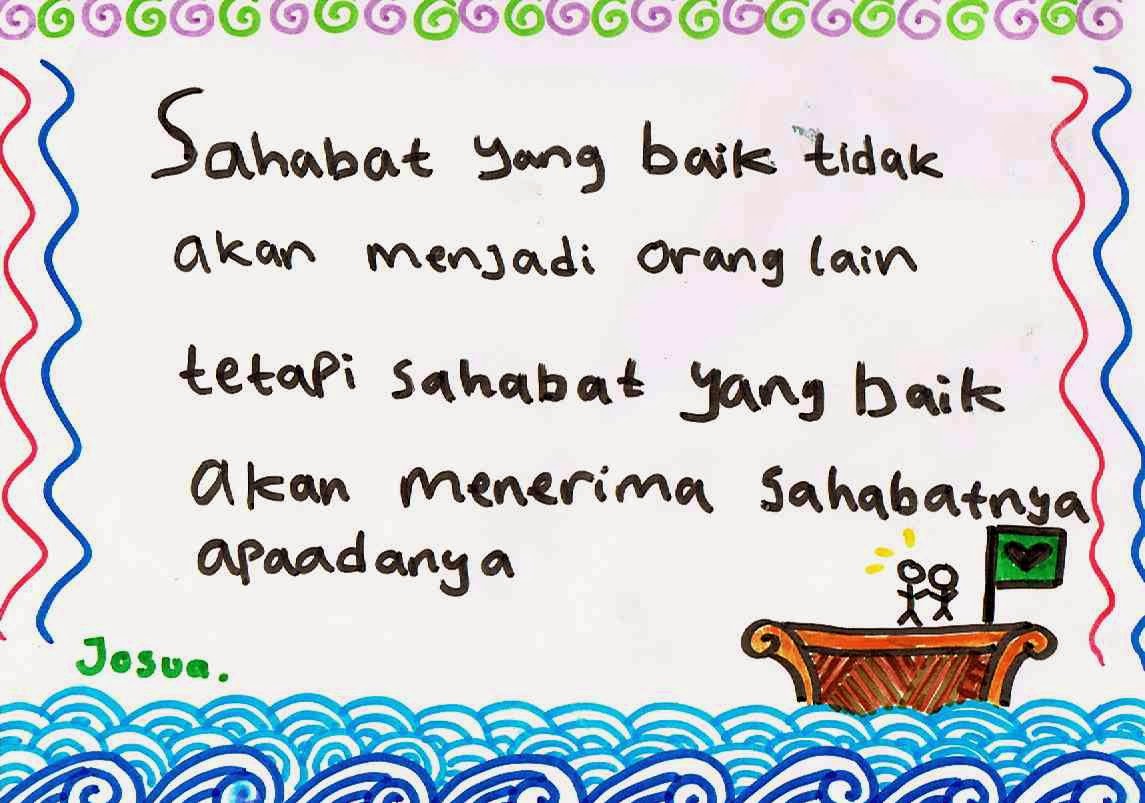 Sahabat yang baik tidak
akan menjadi orang lain
tetapi sahabat yang baik
akan menerima sahabatnya
apaadanya
Josua.